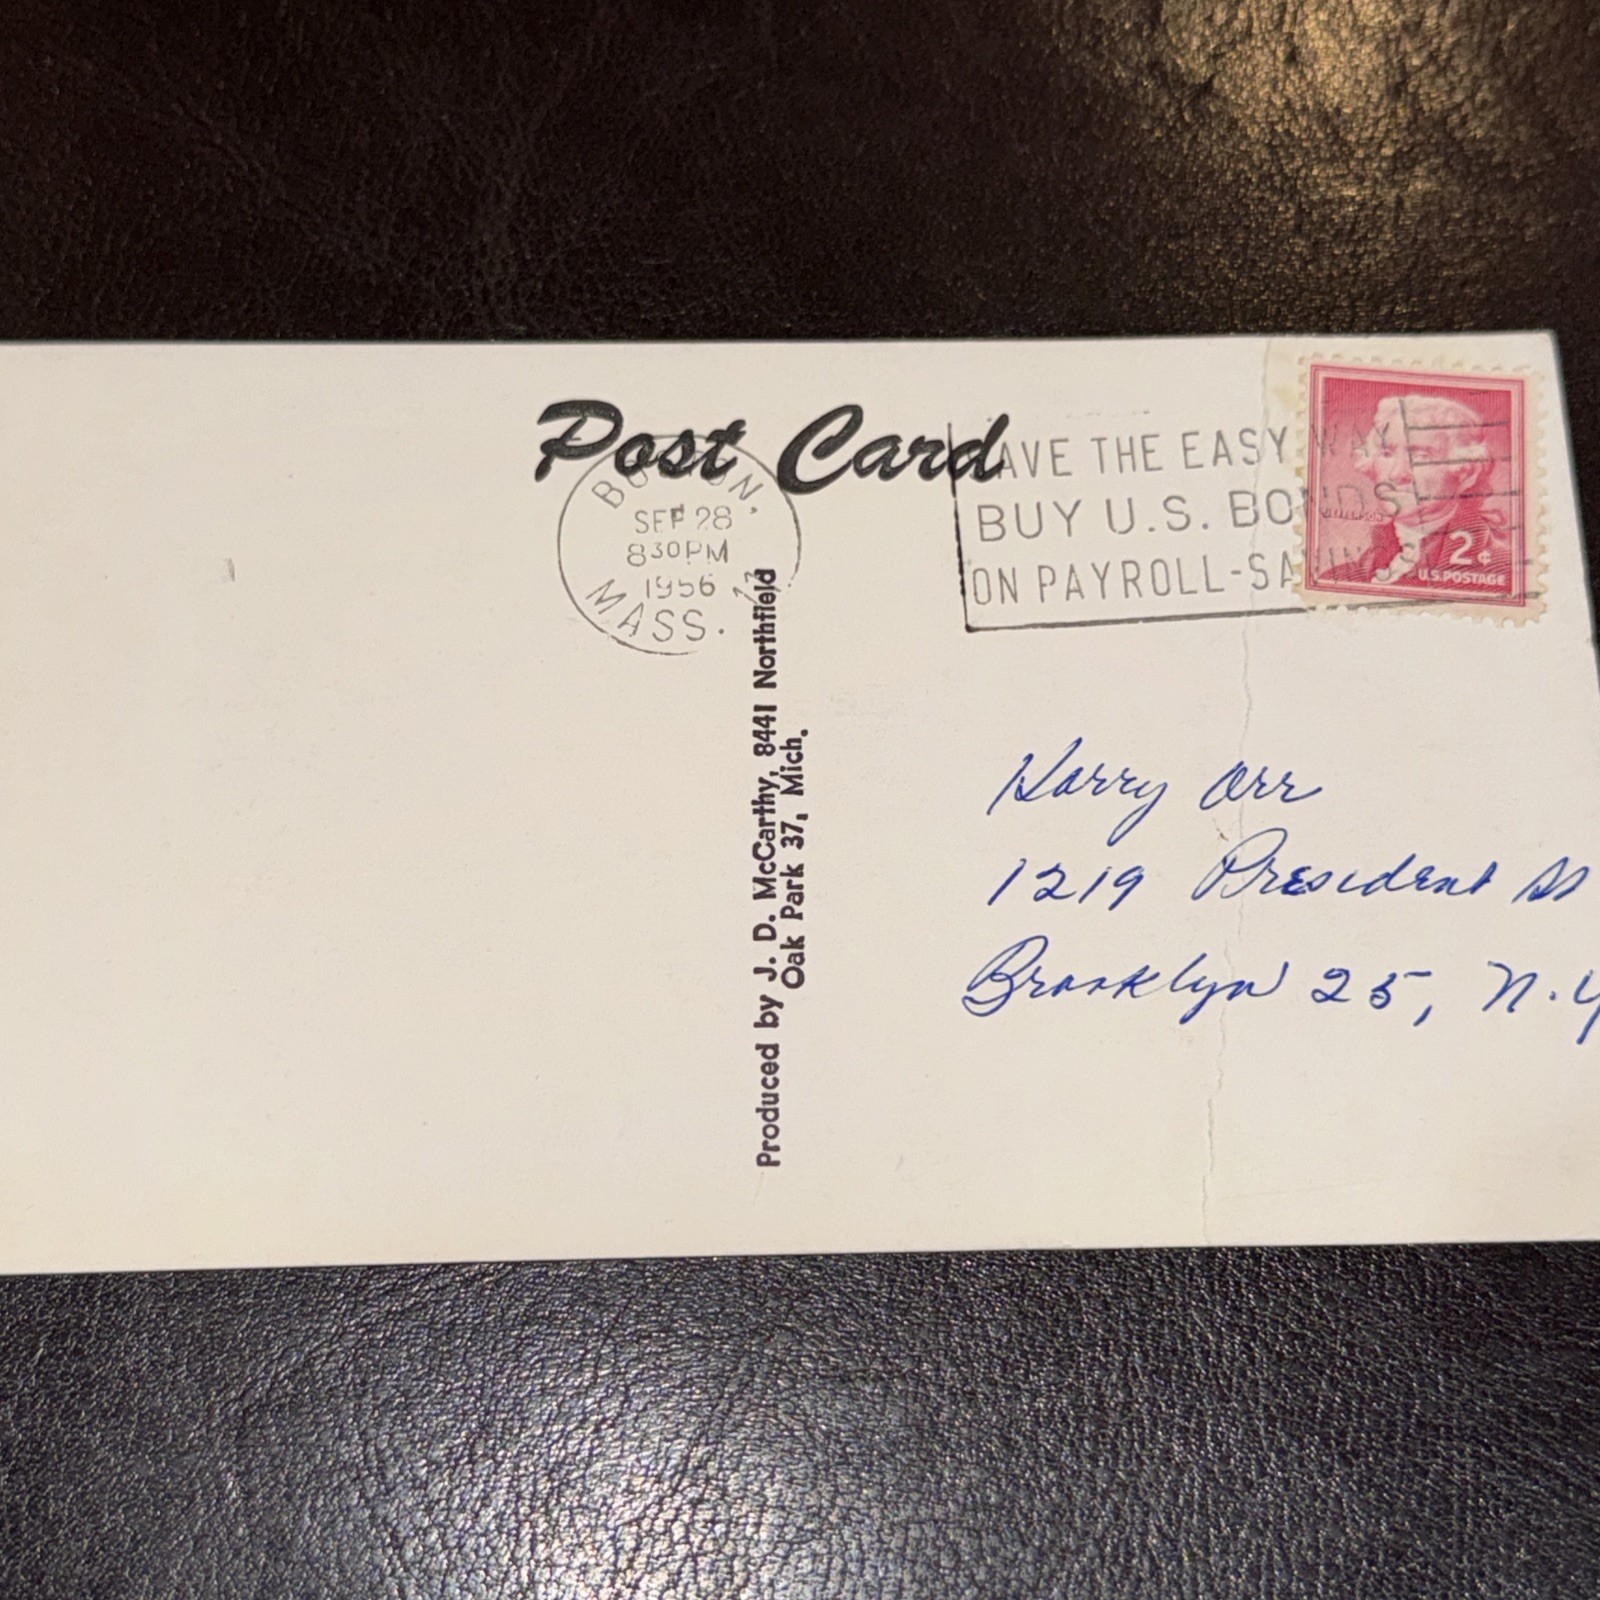 Post Card
BOSTON,
SEP 28
830PM
1956
MASS.
AVE THE EASY WAY
BUY U.S. BONDS
ON PAYROLL-SAVINGS
JEFFERSON
2¢
U.S. POSTAGE
Produced by J. D. McCarthy, 8441 Northfield
Oak Park 37, Mich.
Harry Orr
1219 President St
Brooklyn 25, N.Y